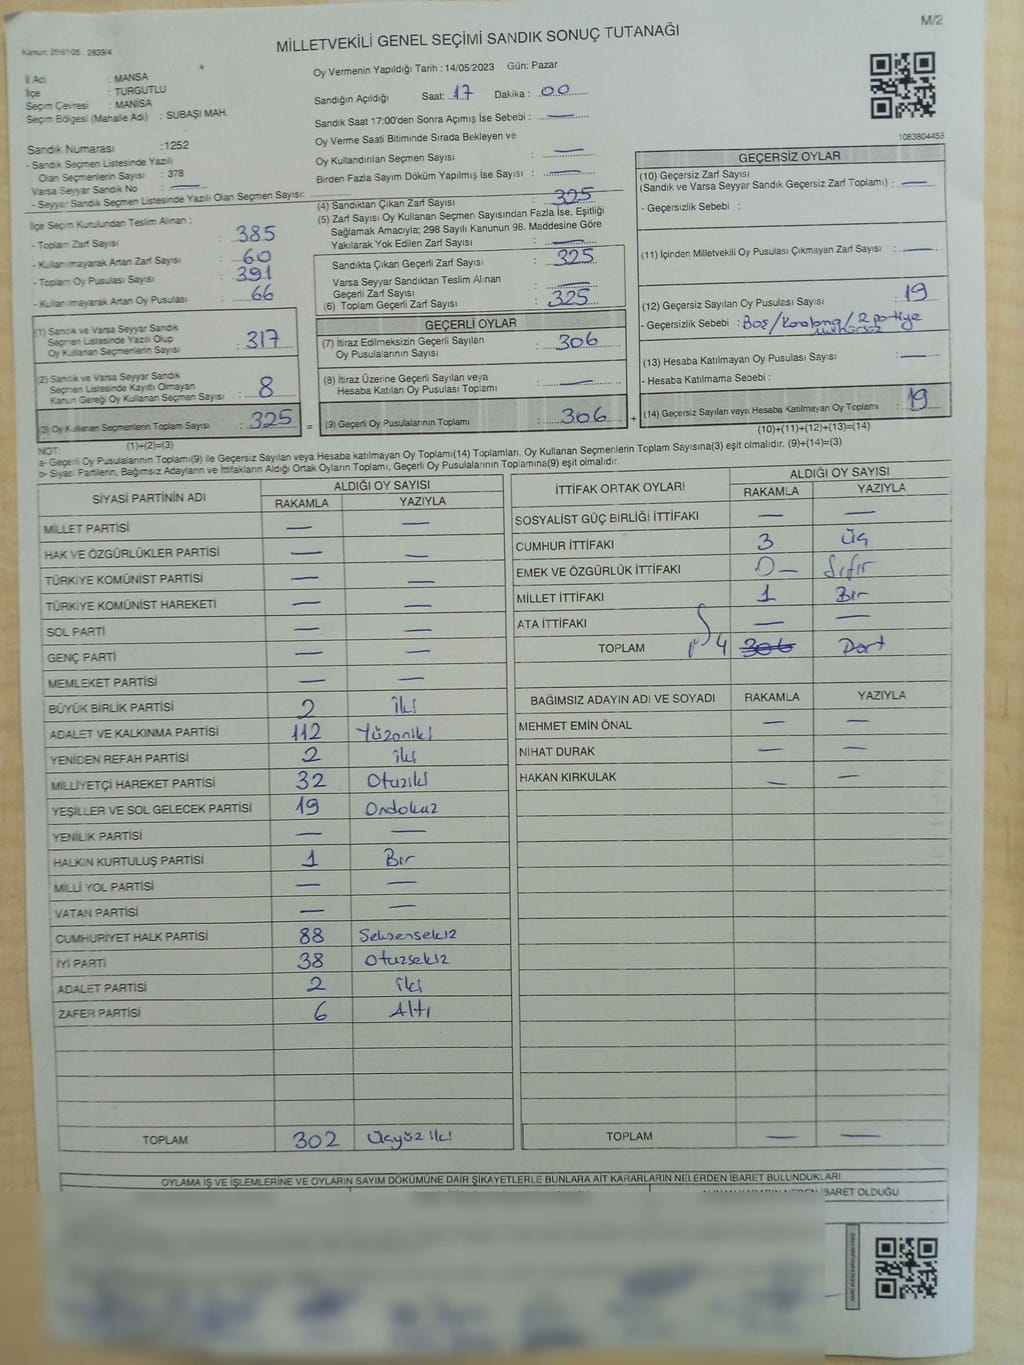 M/2
Kanun: 298/105 , 2839/4
MİLLETVEKİLİ GENEL SEÇİMİ SANDIK SONUÇ TUTANAĞI
İl Adı : MANİSA
İlçe : TURGUTLU
Seçim Çevresi : MANİSA
Seçim Bölgesi (Mahalle Adı) : SUBAŞI MAH.
Sandık Numarası :1252
- Sandık Seçmen Listesinde Yazılı
Olan Seçmenlerin Sayısı : 378
Varsa Seyyar Sandık No : —
- Seyyar Sandık Seçmen Listesinde Yazılı Olan Seçmen Sayısı:
İlçe Seçim Kurulundan Teslim Alınan :
- Toplam Zarf Sayısı : 385
- Kullanılmayarak Artan Zarf Sayısı : 60
- Toplam Oy Pusulası Sayısı : 391
- Kullanılmayarak Artan Oy Pusulası : 66
(1) Sandık ve Varsa Seyyar Sandık
Seçmen Listesinde Yazılı Olup
Oy Kullanan Seçmenlerin Sayısı : 317
(2) Sandık ve Varsa Seyyar Sandık
Seçmen Listesinde Kayıtlı Olmayan
Kanun Gereği Oy Kullanan Seçmen Sayısı : 8
(3) Oy Kullanan Seçmenlerin Toplam Sayısı : 325
(1)+(2)=(3)
Oy Vermenin Yapıldığı Tarih : 14/05/2023 Gün: Pazar
Sandığın Açıldığı Saat: 17 Dakika : 00
Sandık Saat 17:00'den Sonra Açılmış İse Sebebi : —
Oy Verme Saati Bitiminde Sırada Bekleyen ve
Oy Kullandırılan Seçmen Sayısı : —
Birden Fazla Sayım Döküm Yapılmış İse Sayısı : —
(4) Sandıktan Çıkan Zarf Sayısı : 325
(5) Zarf Sayısı Oy Kullanan Seçmen Sayısından Fazla İse, Eşitliği
Sağlamak Amacıyla; 298 Sayılı Kanunun 98. Maddesine Göre
Yakılarak Yok Edilen Zarf Sayısı : —
Sandıkta Çıkan Geçerli Zarf Sayısı : 325
Varsa Seyyar Sandıktan Teslim Alınan
Geçerli Zarf Sayısı : —
(6) Toplam Geçerli Zarf Sayısı : 325
GEÇERLİ OYLAR
(7) İtiraz Edilmeksizin Geçerli Sayılan
Oy Pusulalarının Sayısı : 306
(8) İtiraz Üzerine Geçerli Sayılan veya
Hesaba Katılan Oy Pusulası Toplamı : —
= (9) Geçerli Oy Pusulalarının Toplamı : 306 +
1083804458
GEÇERSİZ OYLAR
(10) Geçersiz Zarf Sayısı
(Sandık ve Varsa Seyyar Sandık Geçersiz Zarf Toplamı) : —
- Geçersizlik Sebebi :
(11) İçinden Milletvekili Oy Pusulası Çıkmayan Zarf Sayısı : —
(12) Geçersiz Sayılan Oy Pusulası Sayısı : 19
- Geçersizlik Sebebi : Boş/Karalama/2 partiye
(13) Hesaba Katılmayan Oy Pusulası Sayısı : —
- Hesaba Katılmama Sebebi :
(14) Geçersiz Sayılan veya Hesaba Katılmayan Oy Toplamı : 19
(10)+(11)+(12)+(13)=(14)
NOT:
a- Geçerli Oy Pusulalarının Toplamı(9) ile Geçersiz Sayılan veya Hesaba katılmayan Oy Toplamı(14) Toplamları, Oy Kullanan Seçmenlerin Toplam Sayısına(3) eşit olmalıdır. (9)+(14)=(3)
b- Siyasi Partilerin, Bağımsız Adayların ve İttifakların Aldığı Ortak Oyların Toplamı, Geçerli Oy Pusulalarının Toplamına(9) eşit olmalıdır.
SİYASİ PARTİNİN ADI ALDIĞI OY SAYISI
RAKAMLA YAZIYLA
MİLLET PARTİSİ — —
HAK VE ÖZGÜRLÜKLER PARTİSİ — —
TÜRKİYE KOMÜNİST PARTİSİ — —
TÜRKİYE KOMÜNİST HAREKETİ — —
SOL PARTİ — —
GENÇ PARTİ — —
MEMLEKET PARTİSİ — —
BÜYÜK BİRLİK PARTİSİ 2 İki
ADALET VE KALKINMA PARTİSİ 112 Yüzoniki
YENİDEN REFAH PARTİSİ 2 iki
MİLLİYETÇİ HAREKET PARTİSİ 32 Otuziki
YEŞİLLER VE SOL GELECEK PARTİSİ 19 Ondokuz
YENİLİK PARTİSİ — —
HALKIN KURTULUŞ PARTİSİ 1 Bir
MİLLİ YOL PARTİSİ — —
VATAN PARTİSİ — —
CUMHURİYET HALK PARTİSİ 88 Seksensekiz
İYİ PARTİ 38 Otuzsekiz
ADALET PARTİSİ 2 iki
ZAFER PARTİSİ 6 Altı
TOPLAM 302 Üçyüz iki
İTTİFAK ORTAK OYLARI ALDIĞI OY SAYISI
RAKAMLA YAZIYLA
SOSYALİST GÜÇ BİRLİĞİ İTTİFAKI — —
CUMHUR İTTİFAKI 3 Üç
EMEK VE ÖZGÜRLÜK İTTİFAKI 0 — Sıfır
MİLLET İTTİFAKI 1 Bir
ATA İTTİFAKI — —
TOPLAM 4 306 Dört
BAĞIMSIZ ADAYIN ADI VE SOYADI RAKAMLA YAZIYLA
MEHMET EMİN ÖNAL — —
NİHAT DURAK — —
HAKAN KIRKULAK — —
TOPLAM — —
OYLAMA İŞ VE İŞLEMLERİNE VE OYLARIN SAYIM DÖKÜMÜNE DAİR ŞİKAYETLERLE BUNLARA AİT KARARLARIN NELERDEN İBARET BULUNDUKLARI
İBARET OLDUĞU